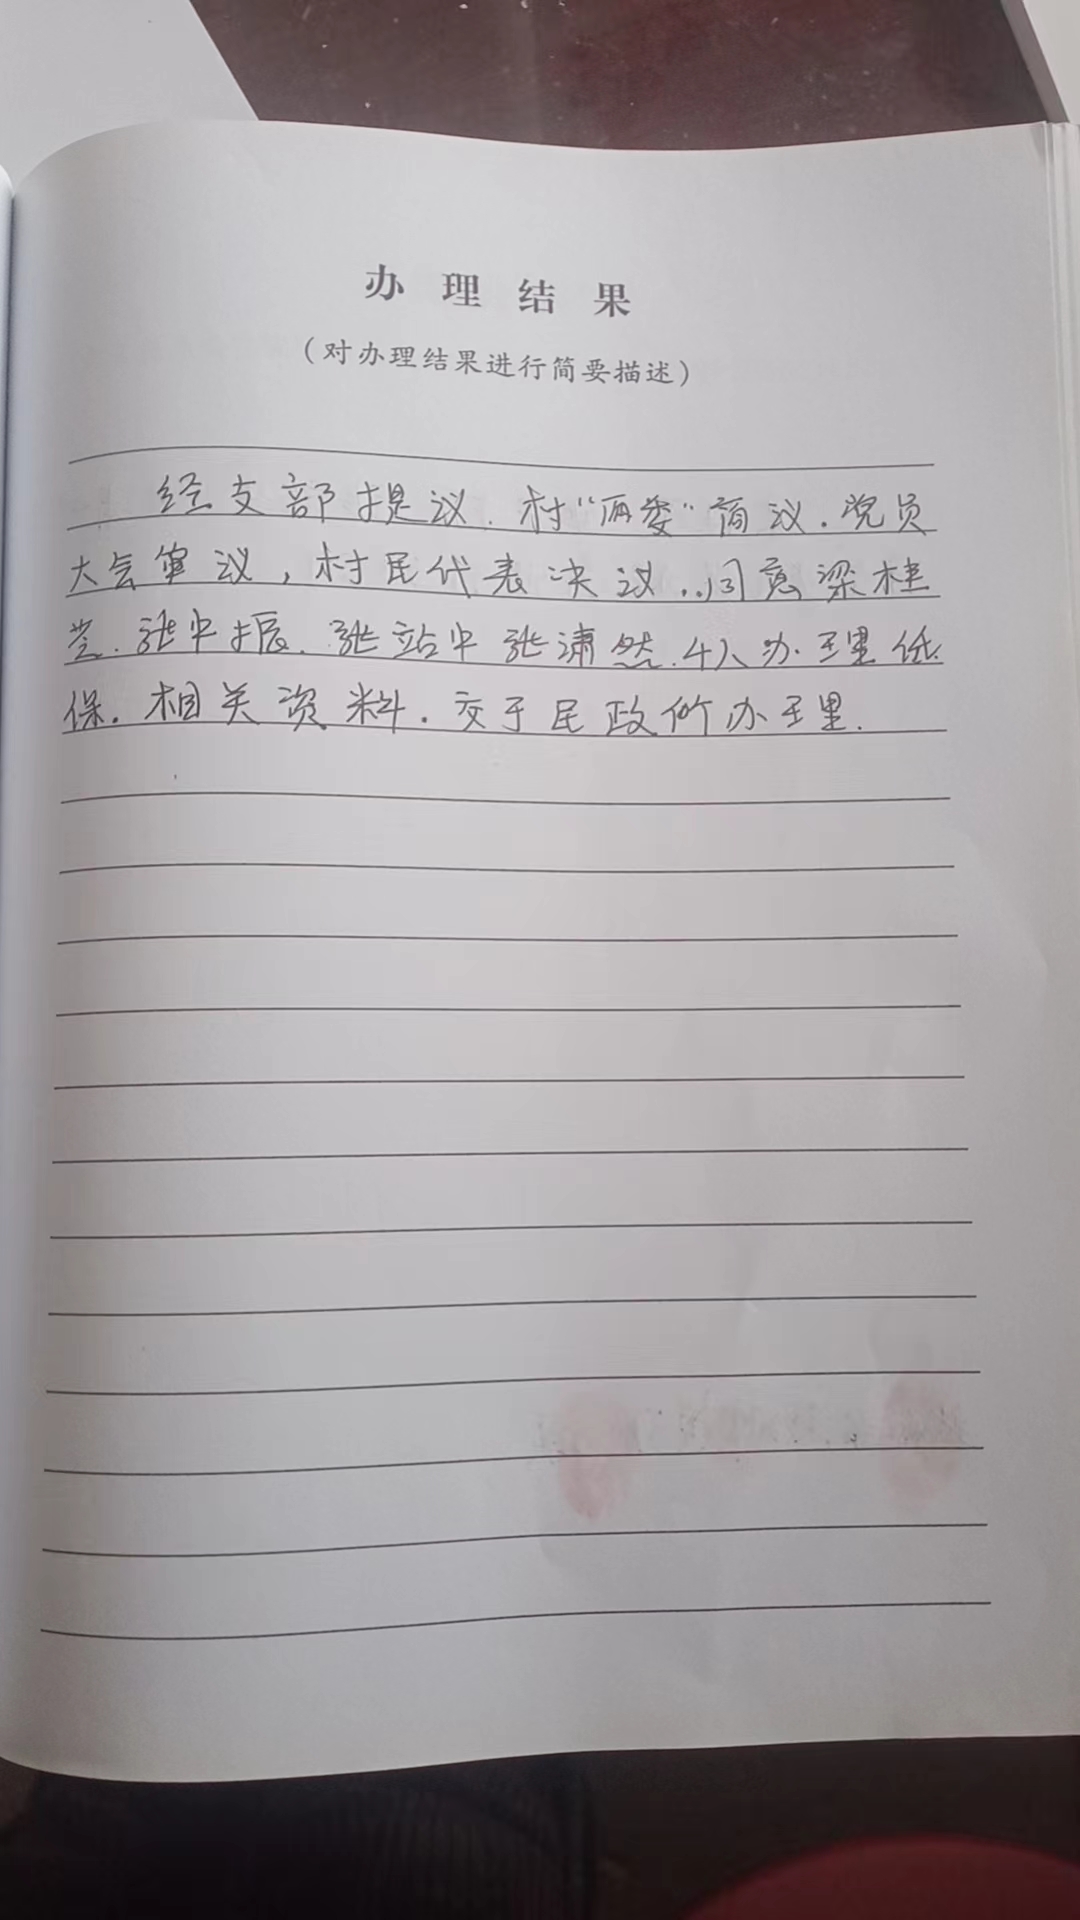 办理结果
（对办理结果进行简要描述）
经支部提议.村“两委”商议.党员
大会审议,村民代表决议..同意梁桂
芝.张中振.张站中张潇然.4人办理低
保.相关资料.交于民政所办理.